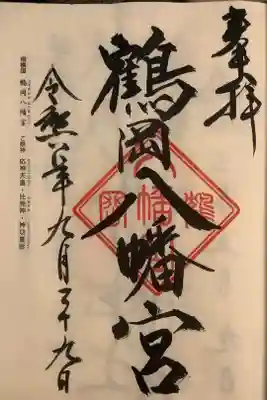 奉拝
鶴岡八幡宮
令和年九月二十九日
相模国 鶴岡八幡宮 ご祭神 応神天皇・比売神・神功皇后